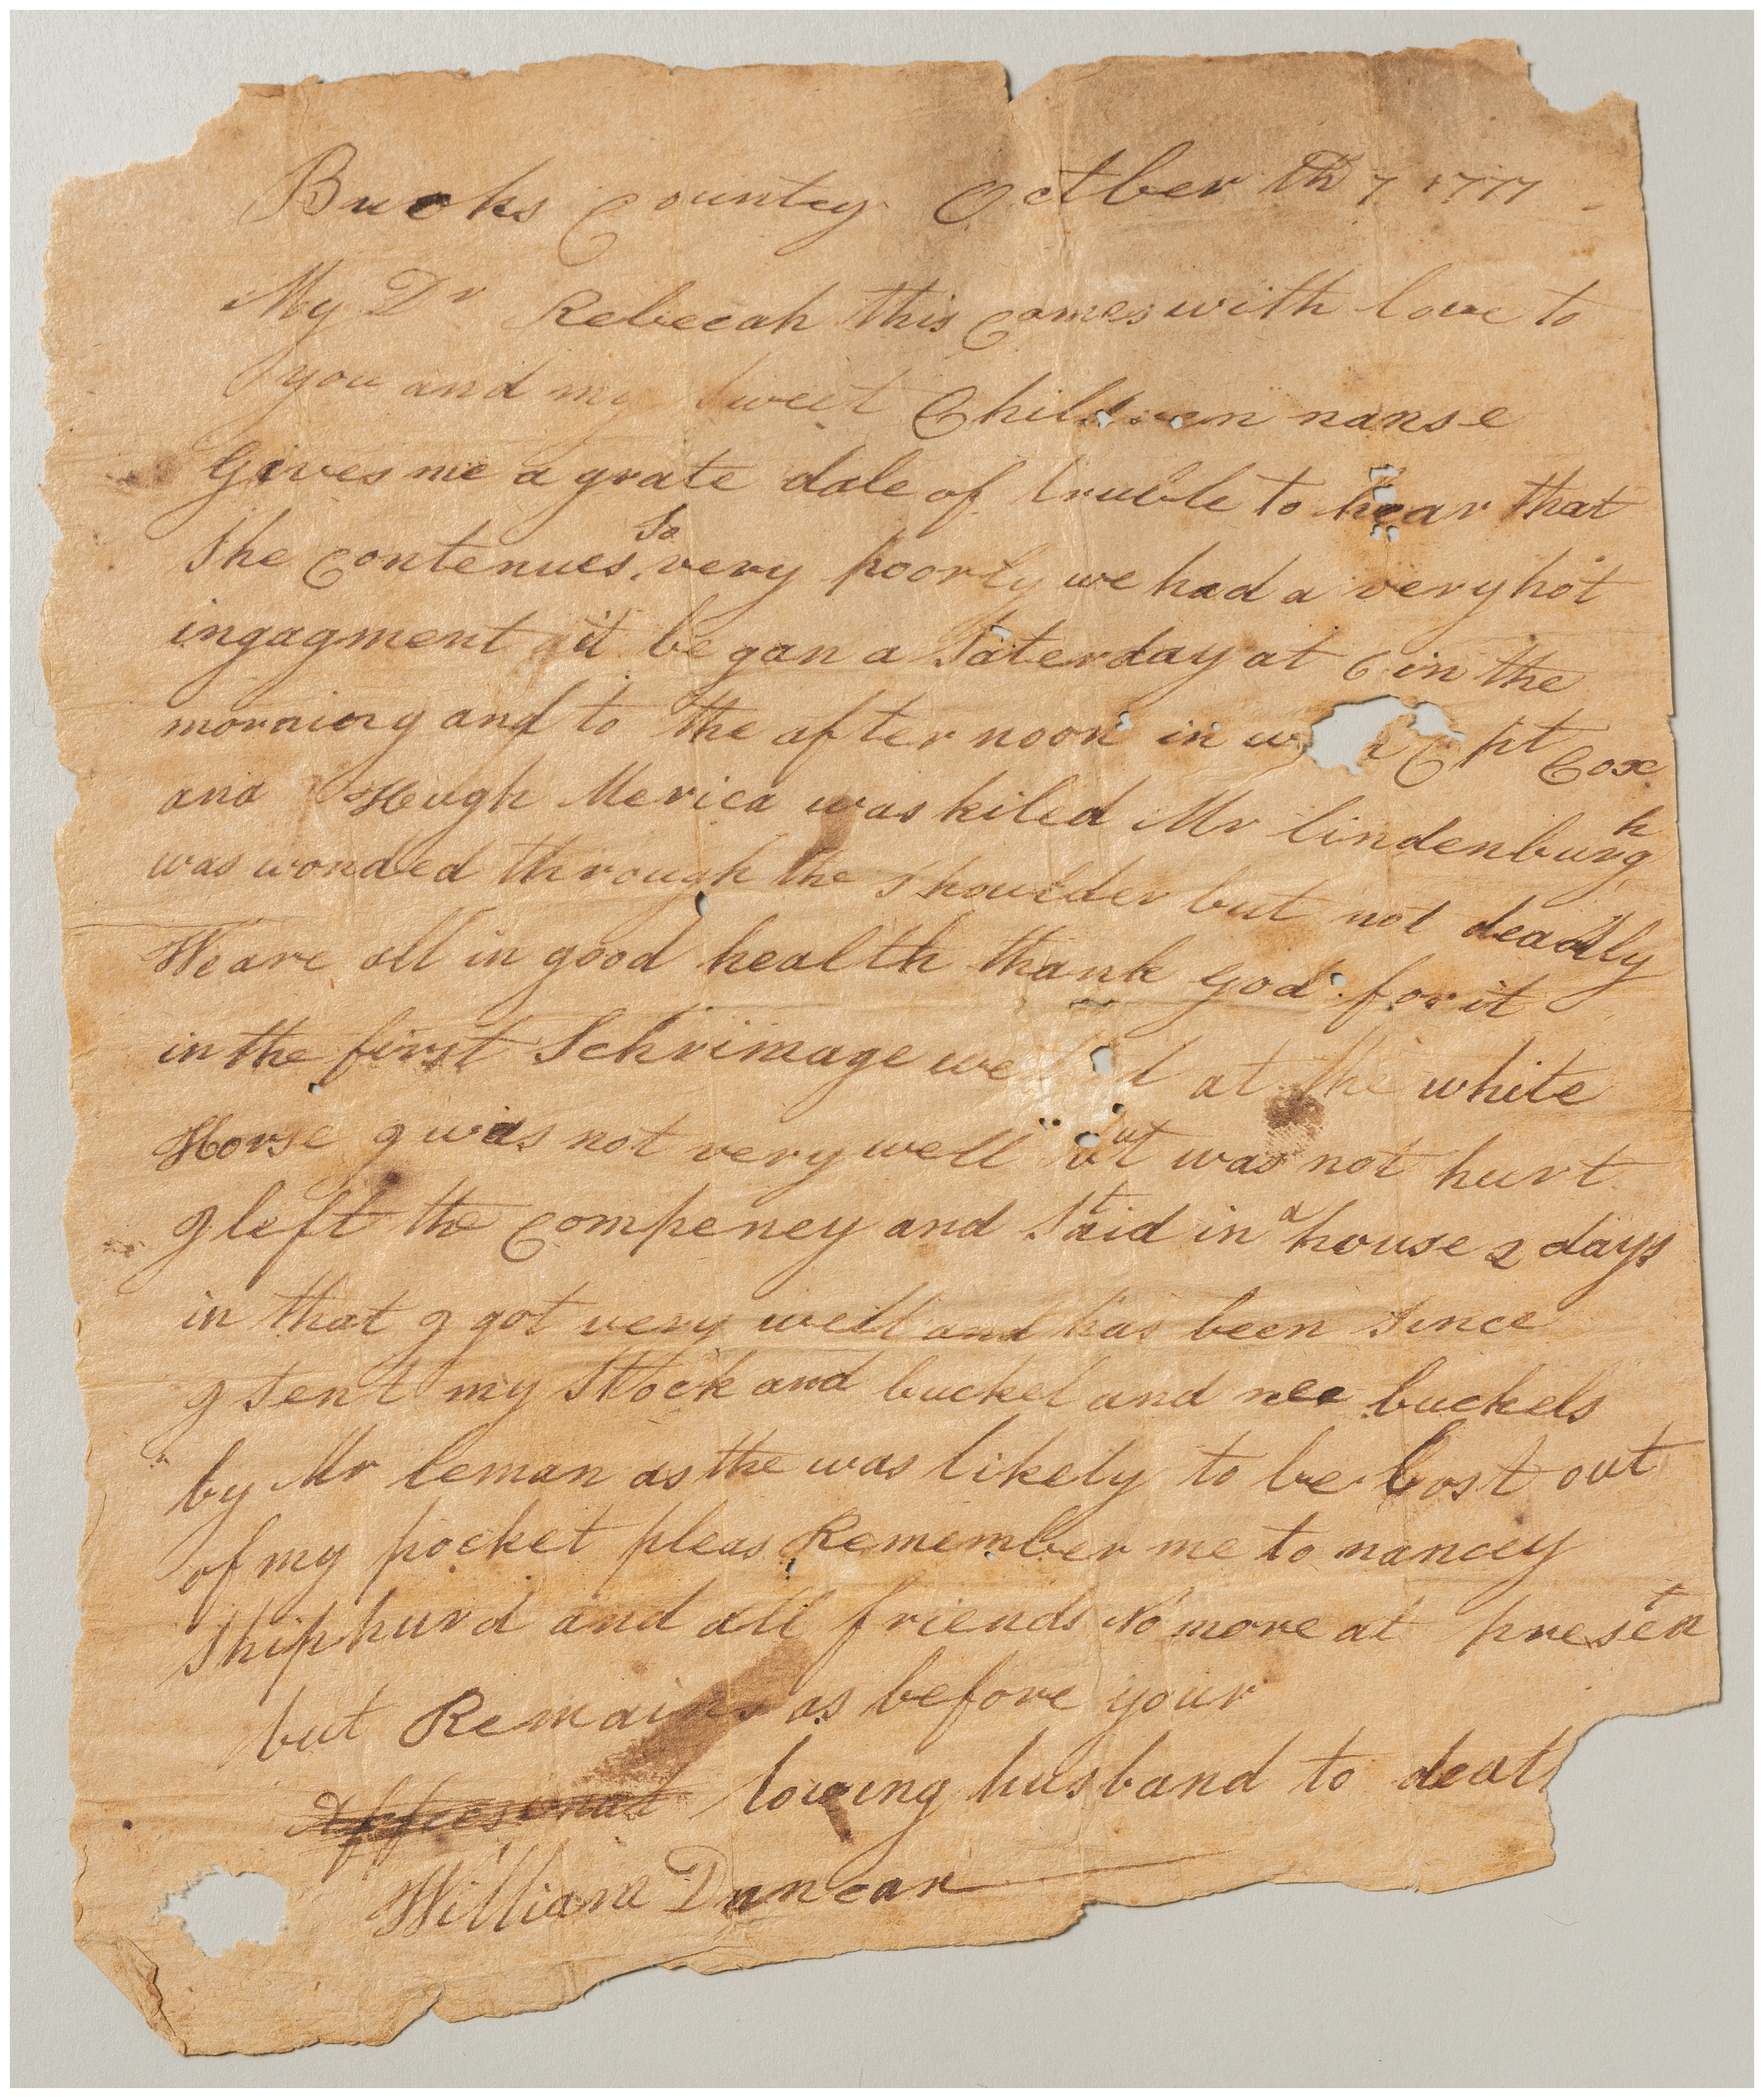 Bucks County Octber th 7 1777
My Dr Rebecah this Comes with love to
you and my sweet Children nanse
Gives me a grate dale of truble to hear that
She Contenues So very poorly we had a very hot
ingagment it be gan a Saterday at 6 in the
morning and to the after noon in Cpt Cox
and Heugh Merica was kiled Mr lindenburgh
was wonded through the shoulder but not deadly
We are all in good health thank God for it
in the first Schrimage we at the white
Horse I was not very well but was not hurt
I left the Compeney and Staid in a house 2 days
in that I got very well and has been Since
I Sent my Stock and buckel and nee buckels
by Mr leman as the was likely to be lost out
of my pocket pleas Remember me to nancey
Shiphurd and all friends No more at present
but Remains as before your
loveing husband to death
William Duncan